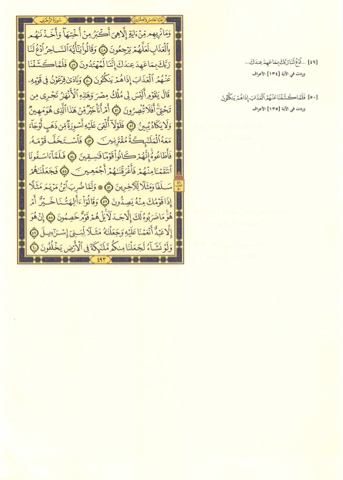 سورة الزخرف
وَمَا نُرِيهِم مِّنْ ءَايَةٍ إِلَّا هِىَ أَكْبَرُ مِنْ أُخْتِهَا وَأَخَذْنَٰهُم
بِٱلْعَذَابِ لَعَلَّهُمْ يَرْجِعُونَ ٤٨ وَقَالُوا۟ يَٰٓأَيُّهَ ٱلسَّاحِرُ ٱدْعُ لَنَا
رَبَّكَ بِمَا عَهِدَ عِندَكَ إِنَّنَا لَمُهْتَدُونَ ٤٩ فَلَمَّا كَشَفْنَا
عَنْهُمُ ٱلْعَذَابَ إِذَا هُمْ يَنكُثُونَ ٥٠ وَنَادَىٰ فِرْعَوْنُ فِى قَوْمِهِۦ
قَالَ يَٰقَوْمِ أَلَيْسَ لِى مُلْكُ مِصْرَ وَهَٰذِهِ ٱلْأَنْهَٰرُ تَجْرِى مِن
تَحْتِىٓ أَفَلَا تُبْصِرُونَ ٥١ أَمْ أَنَا۠ خَيْرٌ مِّنْ هَٰذَا ٱلَّذِى هُوَ مَهِينٌ
وَلَا يَكَادُ يُبِينُ ٥٢ فَلَوْلَآ أُلْقِىَ عَلَيْهِ أَسْوِرَةٌ مِّن ذَهَبٍ أَوْ جَآءَ
مَعَهُ ٱلْمَلَٰٓئِكَةُ مُقْتَرِنِينَ ٥٣ فَٱسْتَخَفَّ قَوْمَهُۥ
فَأَطَاعُوهُ إِنَّهُمْ كَانُوا۟ قَوْمًا فَٰسِقِينَ ٥٤ فَلَمَّآ ءَاسَفُونَا
ٱنتَقَمْنَا مِنْهُمْ فَأَغْرَقْنَٰهُمْ أَجْمَعِينَ ٥٥ فَجَعَلْنَٰهُمْ
سَلَفًا وَمَثَلًا لِّلْءَاخِرِينَ ٥٦ وَلَمَّا ضُرِبَ ٱبْنُ مَرْيَمَ مَثَلًا
إِذَا قَوْمُكَ مِنْهُ يَصِدُّونَ ٥٧ وَقَالُوٓا۟ ءَأَٰلِهَتُنَا خَيْرٌ أَمْ
هُوَ مَا ضَرَبُوهُ لَكَ إِلَّا جَدَلًۢا بَلْ هُمْ قَوْمٌ خَصِمُونَ ٥٨ إِنْ هُوَ
إِلَّا عَبْدٌ أَنْعَمْنَا عَلَيْهِ وَجَعَلْنَٰهُ مَثَلًا لِّبَنِىٓ إِسْرَٰٓءِيلَ ٥٩
وَلَوْ نَشَآءُ لَجَعَلْنَا مِنكُم مَّلَٰٓئِكَةً فِى ٱلْأَرْضِ يَخْلُفُونَ ٦٠
٤٩٣
[٤٩] ... ٱدْعُ لَنَا رَبَّكَ بِمَا عَهِدَ عِندَكَ...
وردت في الآية [١٣٤] الأعراف
[٥٠] فَلَمَّا كَشَفْنَا عَنْهُمُ ٱلْعَذَابَ إِذَا هُمْ يَنكُثُونَ
وردت في الآية [١٣٥] الأعراف